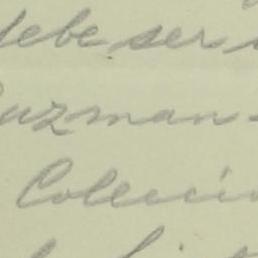 debe ser
Guzman -
Coleccin